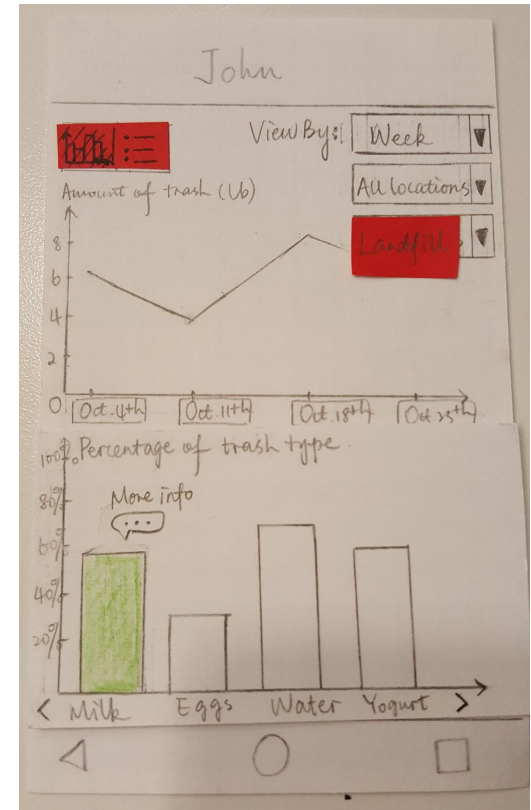 John
View By: Week
All locations
Landfill
Amount of trash (lb)
8
6
4
2
0
Oct.4th Oct.11th Oct.18th Oct.25th
100% Percentage of trash type
80%
More info
...
60%
40%
20%
< Milk Eggs Water Yogurt >